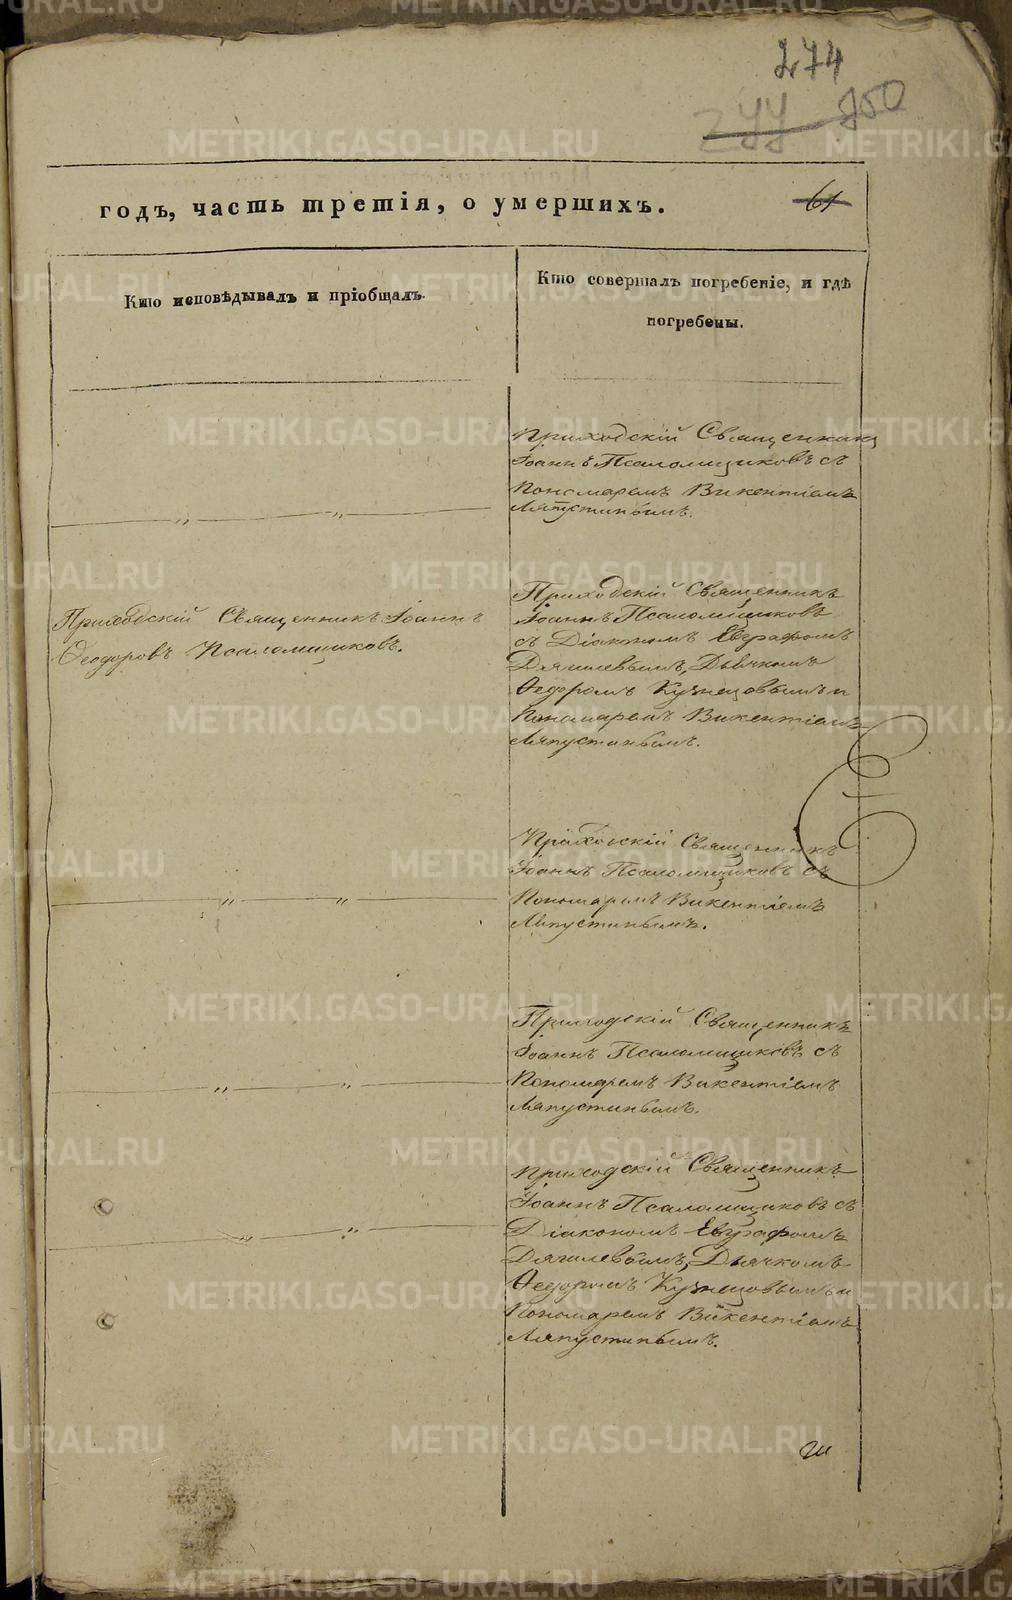 274
277 250
годъ, часть третія, о умершихъ.
61
Кто исповѣдывалъ и пріобщалъ.
Кто совершалъ погребеніе, и гдѣ
погребены.
Приходскій Священникъ
Іоаннъ Псаломщиковъ съ
Пономаремъ Викентіемъ
Ляпустинымъ.
— „ — „ —
Приходскій Священникъ Іоаннъ
Ѳеодоровъ Псаломщиковъ.
Приходскій Священникъ
Іоаннъ Псаломщиковъ
съ Діакономъ Евграфомъ
Дягилевымъ, Дьячкомъ
Ѳедоромъ Кузнецовымъ и
Пономаремъ Викентіемъ
Ляпустинымъ.
Приходскій Священникъ
Іоаннъ Псаломщиковъ съ
Пономаремъ Викентіемъ
Ляпустинымъ.
— „ — „ —
Приходскій Священникъ
Іоаннъ Псаломщиковъ съ
Пономаремъ Викентіемъ
Ляпустинымъ.
— „ — „ —
Приходскій Священникъ
Іоаннъ Псаломщиковъ съ
Діакономъ Евграфомъ
Дягилевымъ, Дьячкомъ
Ѳедоромъ Кузнецовымъ и
Пономаремъ Викентіемъ
Ляпустинымъ.
— „ — „ —
METRIKI.GASO-URAL.RU